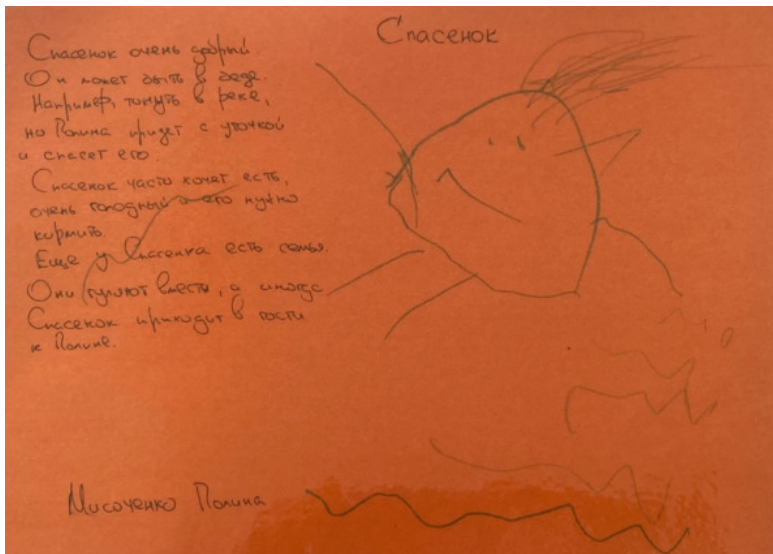 Спасенок
Спасенок очень добрый.
Он может быть в беде.
Например, тонуть в реке,
но Полина придет с уточкой
и спасет его.
Спасенок часто хочет есть,
очень голодный и его нужно
кормить.
Еще у Спасенка есть семья.
Они гуляют вместе, а иногда
Спасенок приходит в гости
к Полине.
Мисоченко Полина